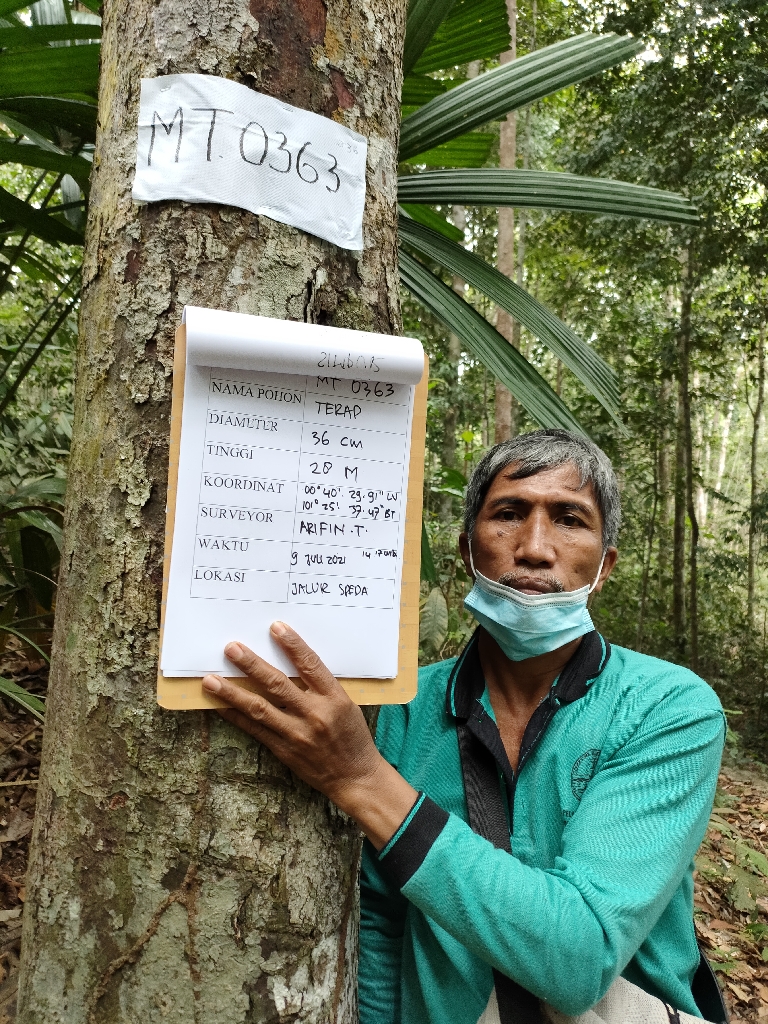 MT. 0363
MT 0363
NAMA POHON TERAP
DIAMETER 36 cm
TINGGI 28 M
KOORDINAT 00° 40' 29.91" LU
101° 25' 37.47" BT
SURVEYOR ARIFIN.T.
WAKTU 9 JULI 2021
LOKASI JALUR SPEDA